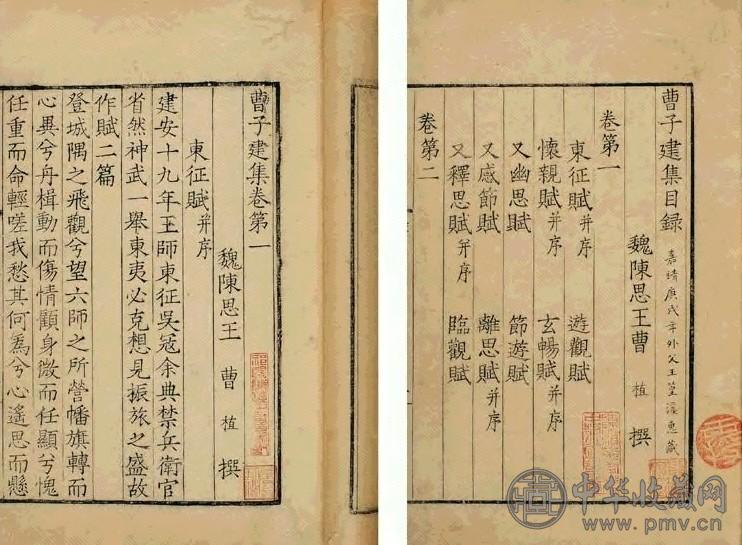 曹子建集目録
嘉靖庚戌年外父王溪惠藏
魏陳思王曹植撰
卷第一
東征賦并序 遊觀賦
懷親賦并序 玄暢賦并序
又幽思賦 節遊賦
又感節賦 離思賦并序
又釋思賦并序 臨觀賦
卷第二
曹子建集卷第一
魏陳思王曹植撰
東征賦并序
建安十九年王師東征吳寇余典禁兵衛官
省然神武一舉東夷必克想見振旅之盛故
作賦二篇
登城隅之飛觀兮望六師之所營幡旗轉而
心異兮舟楫動而傷情顧身微而任顯兮愧
任重而命輕嗟我愁其何為兮心遙思而懸
中华收藏网
www.pmv.cn